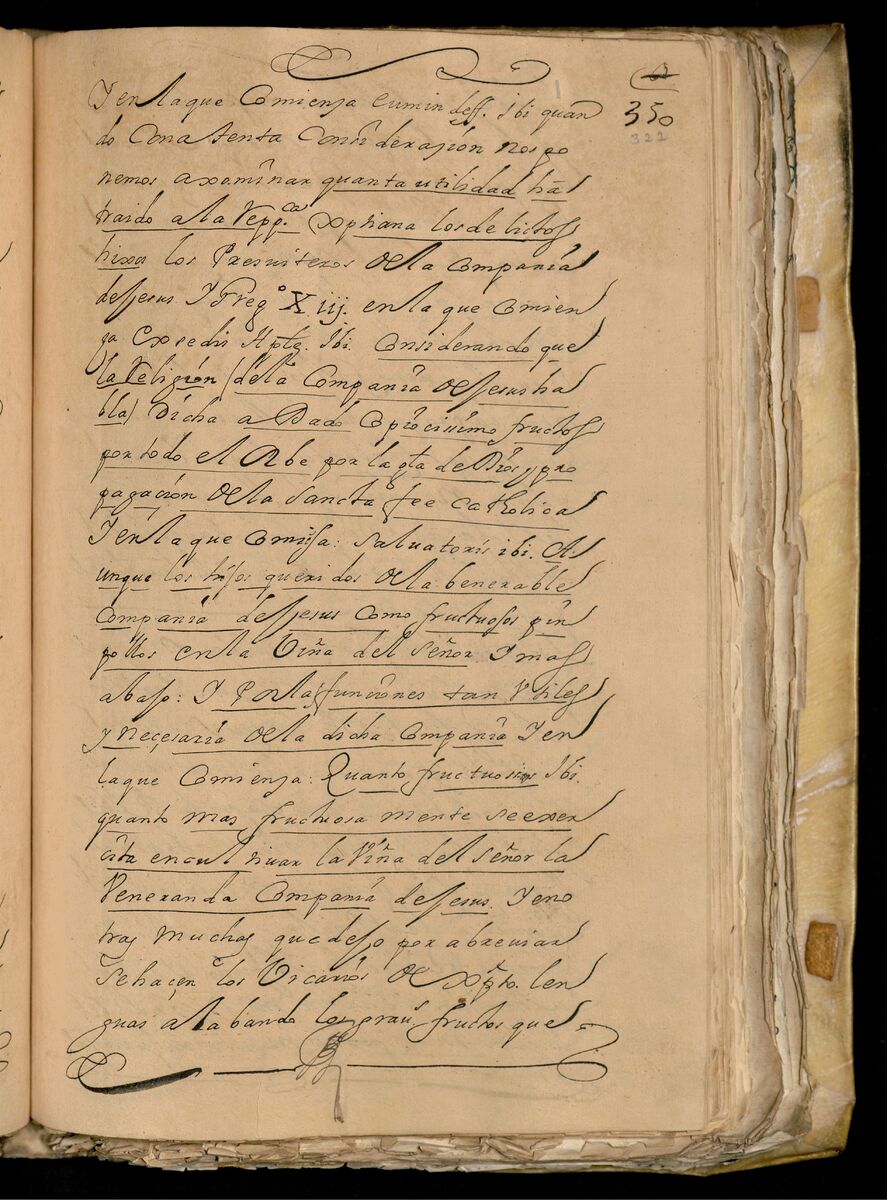 62
350
322
Y en la que Comiensa Cum in deff. Ibi quan
do Con atenta Considerasion nos po
nemos a xominar quanta utilidad há
traido a la Repp.ca Xptiana los delictos
hixos los Presuiteros de la Compania
de Jesus Y Greg.o X iij. en la que Comien
za Ex sedis Apte. Ibi. Considerando que
la Religion (de la Compania de Jesus ha
bla) Dicha a Dado Copiocissimo fructos
por todo el Orbe por la gla de Dios y pro
pagación de la Sancta fee Catholica
Y en la que Comiesa: Saluatoris ibi. A
unque los hijos queridos de la benerable
Compania de Jesus Como fructuosos pin
pollos en la Viña del Señor Y mas
abaso: Y Por las funciones tan Vtiles
y Neçesaria de la dicha Compania Y en
la que Comiensa: Quanto fructuosius Ibi.
quanto mas fructuosa mente se exer
cita en cultiuar la Viña del Señor la
Veneranda Compania de Jesus. Y en o
tras Muchas que dejo por abreuiar
Se haçen los Vicarios de Xpto. len
guas alabando los graues fructos que